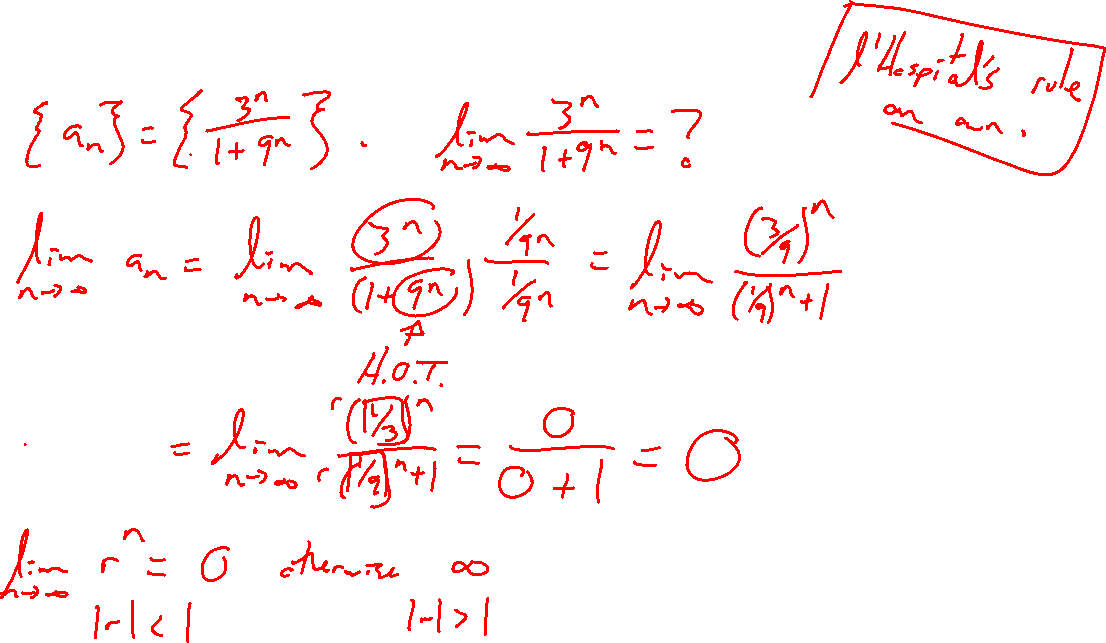 l'Hospital's rule
on own.
{a_n} = {3^n / (1 + 9^n)}. lim_{n→∞} 3^n / (1 + 9^n) = ?
lim_{n→∞} a_n = lim_{n→∞} 3^n / (1 + 9^n) · (1/9^n) / (1/9^n) = lim_{n→∞} (3/9)^n / ((1/9)^n + 1)
H.O.T.
= lim_{n→∞} r (1/3)^n / r (1/9)^n + 1 = 0 / (0 + 1) = 0
lim_{n→∞} r^n = 0 otherwise ∞
|r| < 1 |r| > 1